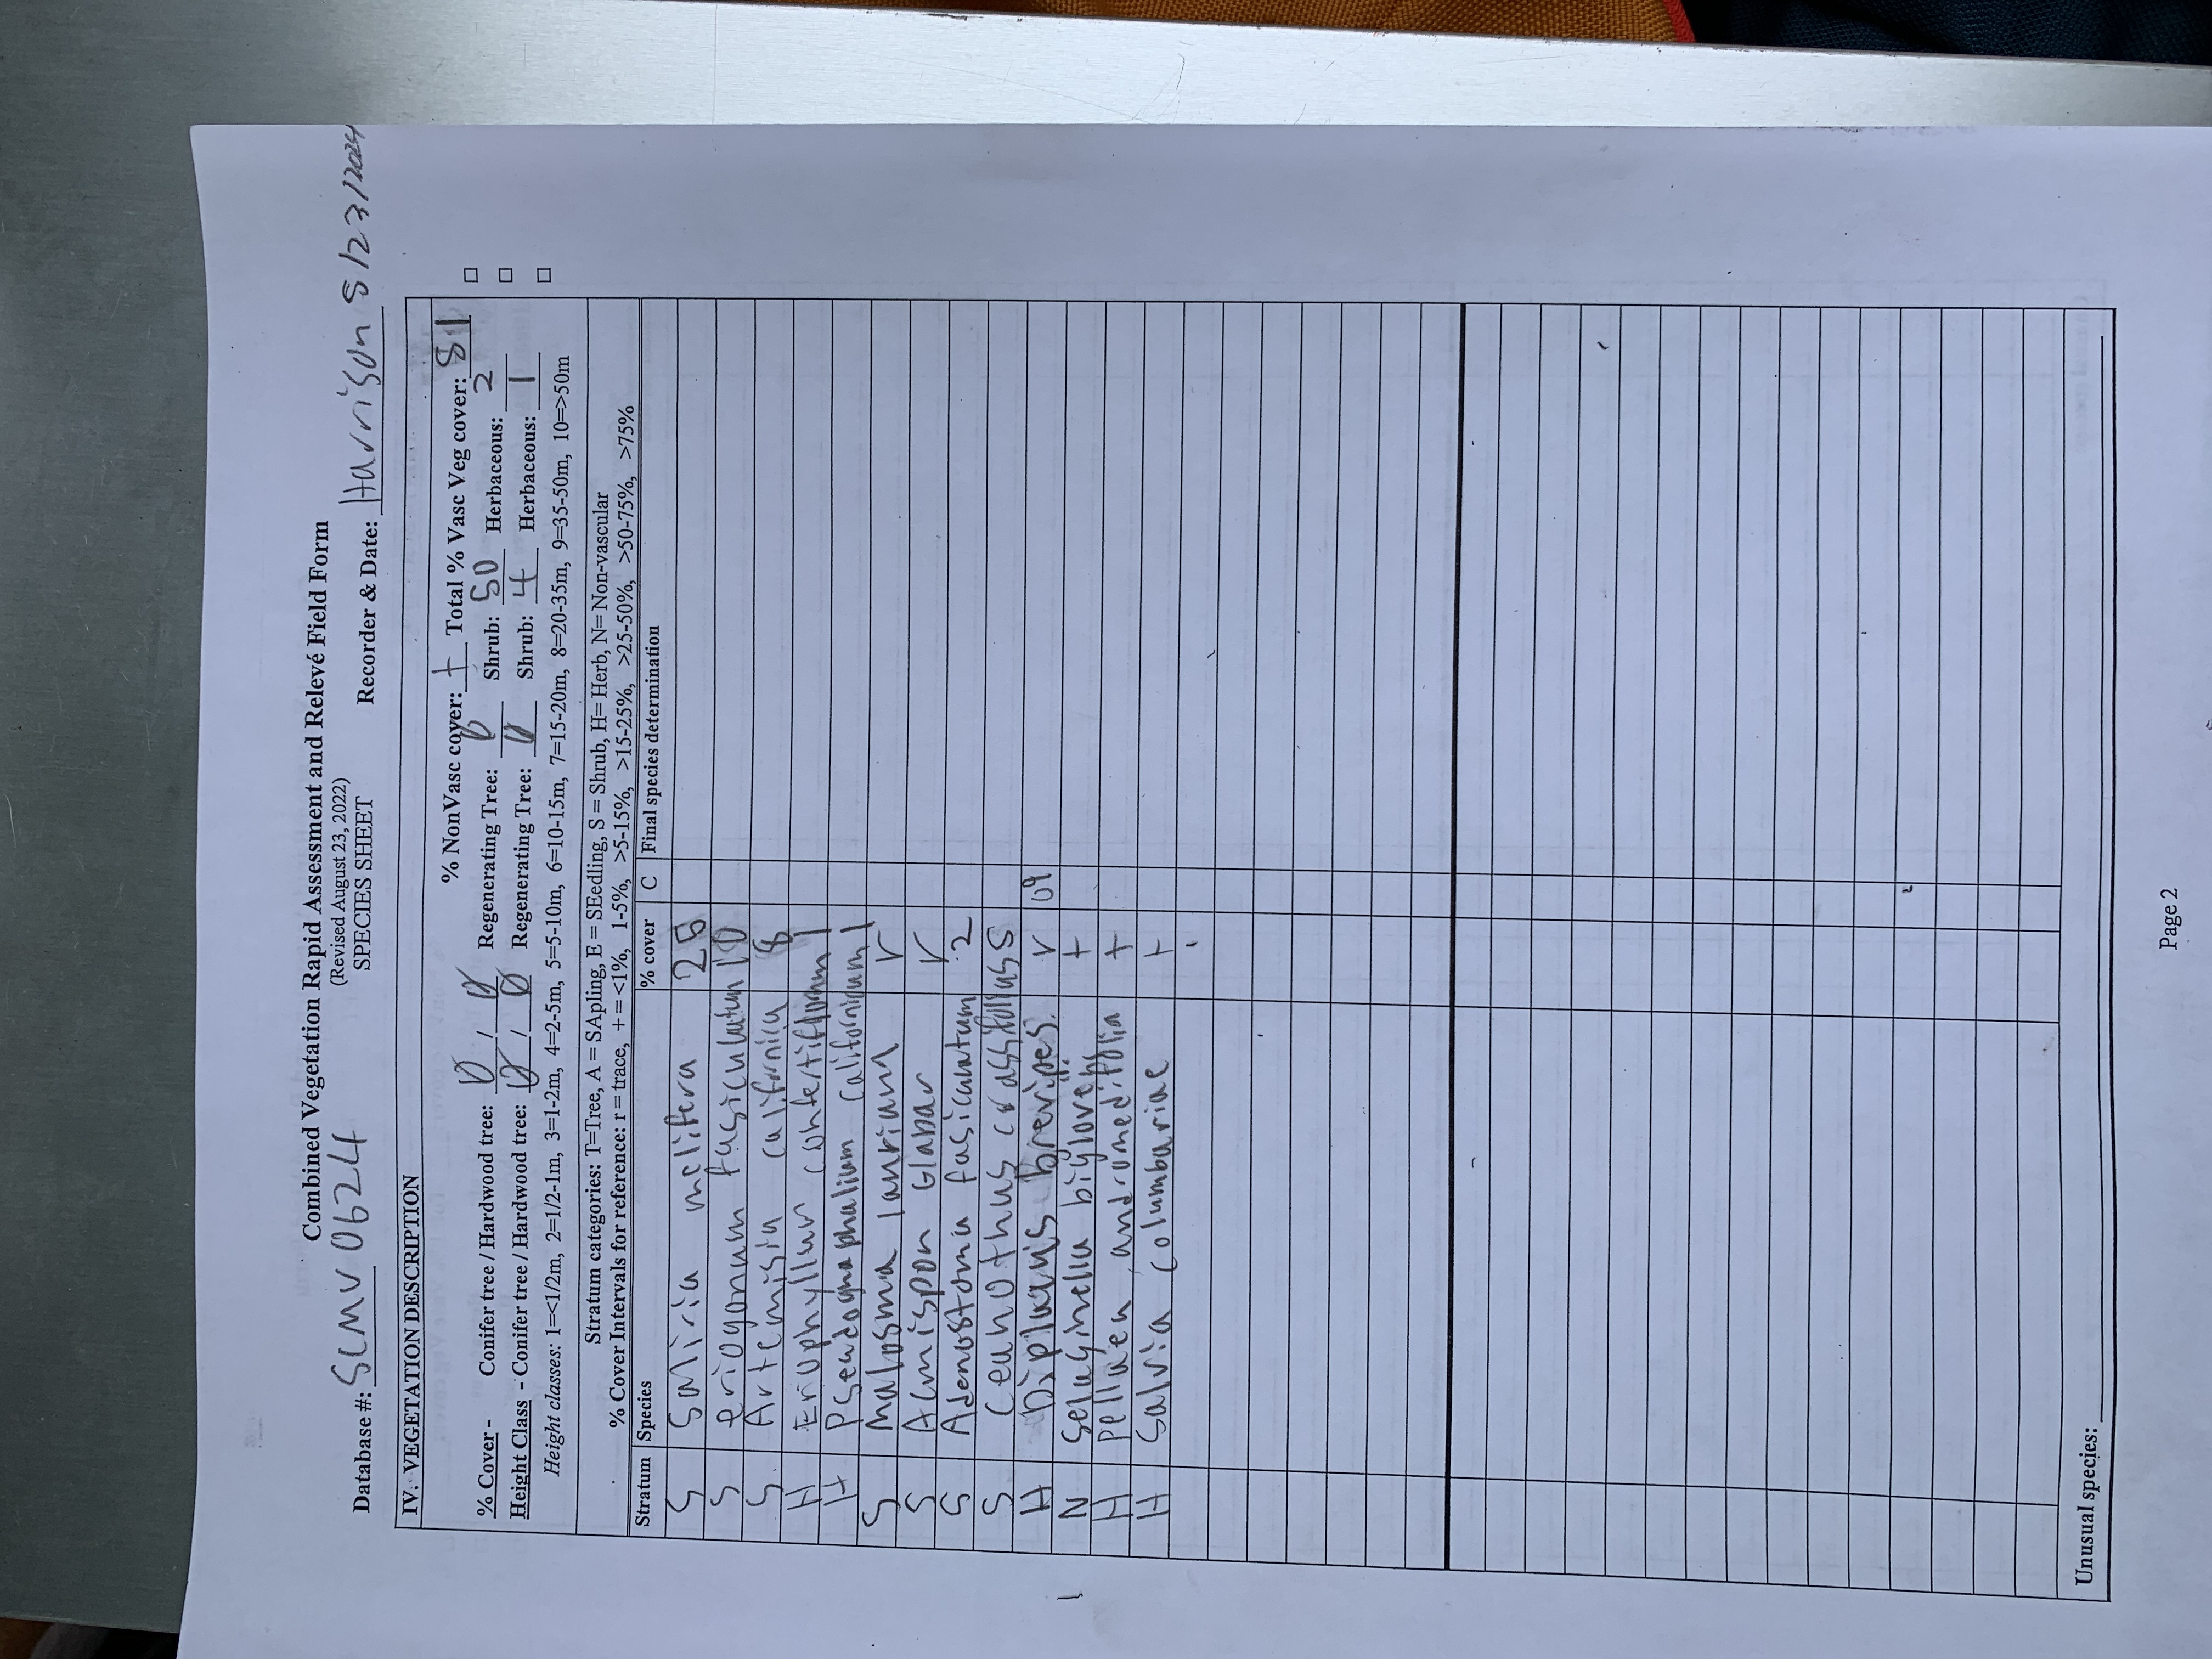 Combined Vegetation Rapid Assessment and Relevé Field Form
(Revised August 23, 2022)
SPECIES SHEET
Database #: SCMV 0624 Recorder & Date: Harrison 5/23/2024
IV. VEGETATION DESCRIPTION
% NonVasc cover: + Total % Vasc Veg cover: 51
% Cover - Conifer tree / Hardwood tree: 0 / 0 Regenerating Tree: 0 Shrub: 50 Herbaceous: 2
Height Class - Conifer tree / Hardwood tree: 0 / 0 Regenerating Tree: 0 Shrub: 4 Herbaceous: 1
Height classes: 1=<1/2m, 2=1/2-1m, 3=1-2m, 4=2-5m, 5=5-10m, 6=10-15m, 7=15-20m, 8=20-35m, 9=35-50m, 10=>50m
Stratum categories: T=Tree, A = SApling, E = SEedling, S = Shrub, H= Herb, N= Non-vascular
% Cover Intervals for reference: r = trace, + = <1%, 1-5%, >5-15%, >15-25%, >25-50%, >50-75%, >75%
Stratum Species % cover C Final species determination
S Salivia mellifera 25
S eriogonum fasiculatum 10
S Artemisia californica 8
H Eriophyllum confertiflorum 1
H Pseudognaphalium californicum 1
S Malosma lauriana r
S Acmispon Glabar r
S Adenostoma fasicuatum 2
S Ceanothus crassifolius 5
H Diplacus brevipes r
N Selaginella biglovei +
H Pellaea andromedifolia +
H Salvia columbariae +
Unusual species:
Page 2